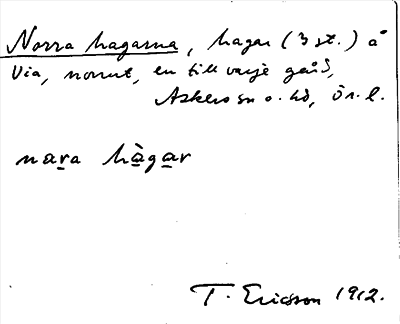 Norra hagarna, hagar (3 st.) å
Via, norrut, en till varje gård,
Askers sn o. hd, Ör. l.
nara hàgar
T. Ericsson 1912.